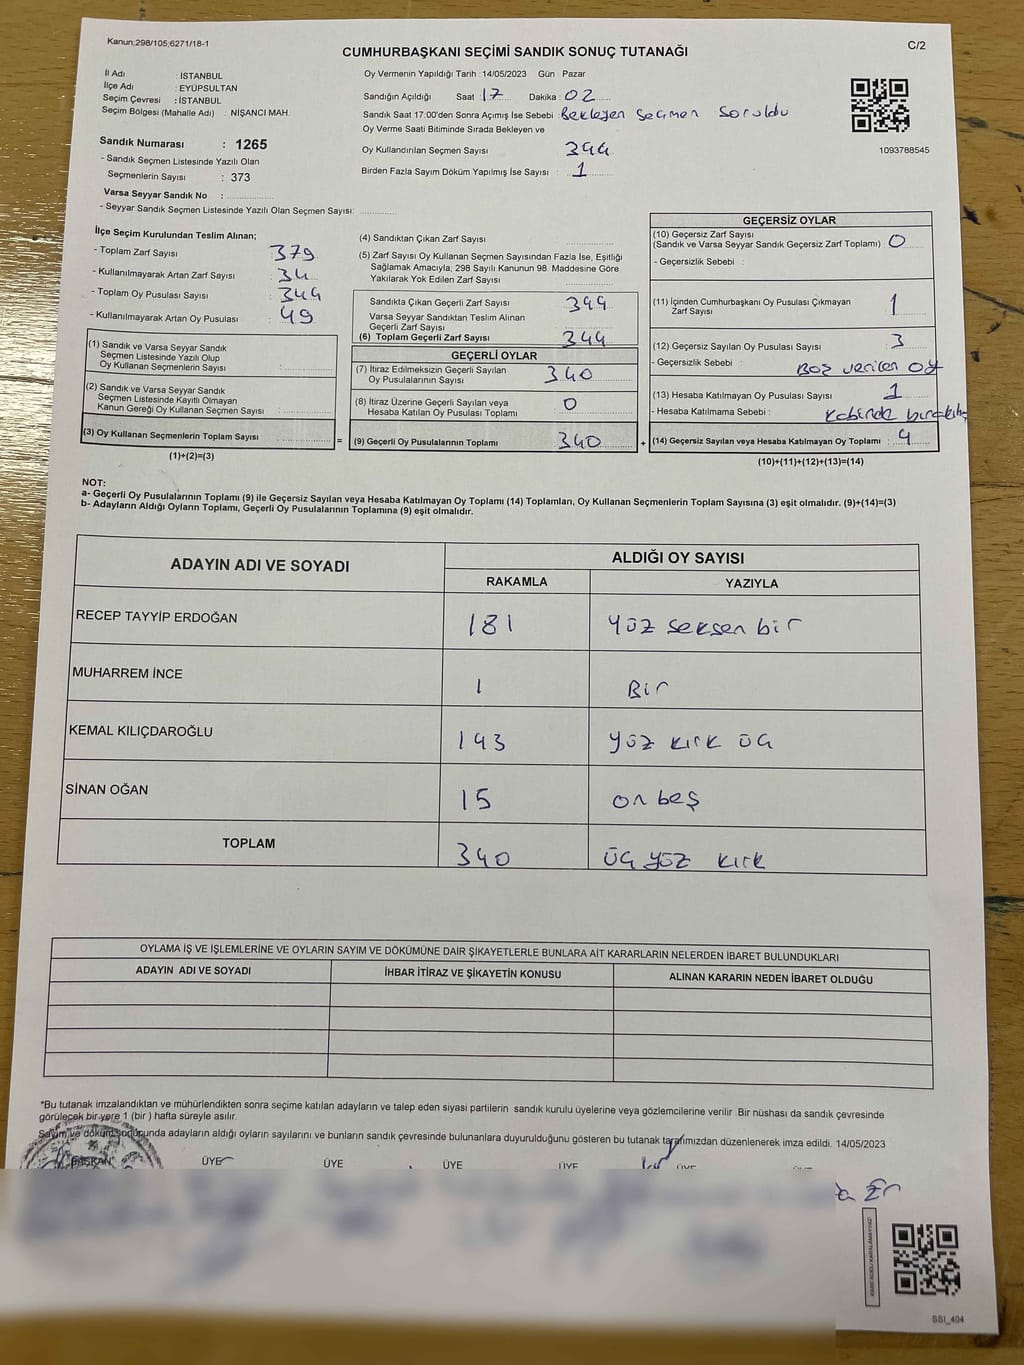 Kanun:298/105;6271/18-1
C/2
CUMHURBAŞKANI SEÇİMİ SANDIK SONUÇ TUTANAĞI
İl Adı : İSTANBUL
İlçe Adı : EYÜPSULTAN
Seçim Çevresi : İSTANBUL
Seçim Bölgesi (Mahalle Adı) : NİŞANCI MAH.
Sandık Numarası : 1265
- Sandık Seçmen Listesinde Yazılı Olan
Seçmenlerin Sayısı : 373
Varsa Seyyar Sandık No :
- Seyyar Sandık Seçmen Listesinde Yazılı Olan Seçmen Sayısı:
Oy Vermenin Yapıldığı Tarih :14/05/2023 Gün Pazar
Sandığın Açıldığı Saat : 17 Dakika : 02
Sandık Saat 17:00'den Sonra Açımış İse Sebebi : Bekleyen Seçmen Soruldu
Oy Verme Saati Bitiminde Sırada Bekleyen ve
Oy Kullandırılan Seçmen Sayısı 344
Birden Fazla Sayım Döküm Yapılmış İse Sayısı : 1
1093788545
İlçe Seçim Kurulundan Teslim Alınan;
- Toplam Zarf Sayısı : 379
- Kullanılmayarak Artan Zarf Sayısı : 34
- Toplam Oy Pusulası Sayısı : 344
- Kullanılmayarak Artan Oy Pusulası : 49
(1) Sandık ve Varsa Seyyar Sandık
Seçmen Listesinde Yazılı Olup
Oy Kullanan Seçmenlerin Sayısı :
(2) Sandık ve Varsa Seyyar Sandık
Seçmen Listesinde Kayıtlı Olmayan
Kanun Gereği Oy Kullanan Seçmen Sayısı :
(3) Oy Kullanan Seçmenlerin Toplam Sayısı :
(1)+(2)=(3)
(4) Sandıktan Çıkan Zarf Sayısı
(5) Zarf Sayısı Oy Kullanan Seçmen Sayısından Fazla İse, Eşitliği
Sağlamak Amacıyla; 298 Sayılı Kanunun 98. Maddesine Göre
Yakılarak Yok Edilen Zarf Sayısı
Sandıkta Çıkan Geçerli Zarf Sayısı 344
Varsa Seyyar Sandıktan Teslim Alınan
Geçerli Zarf Sayısı
(6) Toplam Geçerli Zarf Sayısı 344
GEÇERLİ OYLAR
(7) İtiraz Edilmeksizin Geçerli Sayılan
Oy Pusulalarının Sayısı 340
(8) İtiraz Üzerine Geçerli Sayılan veya
Hesaba Katılan Oy Pusulası Toplamı 0
= (9) Geçerli Oy Pusulalarının Toplamı 340 +
GEÇERSİZ OYLAR
(10) Geçersiz Zarf Sayısı
(Sandık ve Varsa Seyyar Sandık Geçersiz Zarf Toplamı) : 0
- Geçersizlik Sebebi :
(11) İçinden Cumhurbaşkanı Oy Pusulası Çıkmayan
Zarf Sayısı 1
(12) Geçersiz Sayılan Oy Pusulası Sayısı : 3
- Geçersizlik Sebebi : Boz verilen oy
(13) Hesaba Katılmayan Oy Pusulası Sayısı : 1
- Hesaba Katılmama Sebebi : kabinde
(14) Geçersiz Sayılan veya Hesaba Katılmayan Oy Toplamı : 4
(10)+(11)+(12)+(13)=(14)
NOT:
a- Geçerli Oy Pusulalarının Toplamı (9) ile Geçersiz Sayılan veya Hesaba Katılmayan Oy Toplamı (14) Toplamları, Oy Kullanan Seçmenlerin Toplam Sayısına (3) eşit olmalıdır. (9)+(14)=(3)
b- Adayların Aldığı Oyların Toplamı, Geçerli Oy Pusulalarının Toplamına (9) eşit olmalıdır.
ADAYIN ADI VE SOYADI ALDIĞI OY SAYISI
RAKAMLA YAZIYLA
RECEP TAYYİP ERDOĞAN 181 Yüz seksen bir
MUHARREM İNCE 1 Bir
KEMAL KILIÇDAROĞLU 143 yüz kırk üç
SİNAN OĞAN 15 on beş
TOPLAM 340 üç yüz kırk
OYLAMA İŞ VE İŞLEMLERİNE VE OYLARIN SAYIM VE DÖKÜMÜNE DAİR ŞİKAYETLERLE BUNLARA AİT KARARLARIN NELERDEN İBARET BULUNDUKLARI
ADAYIN ADI VE SOYADI İHBAR İTİRAZ VE ŞİKAYETİN KONUSU ALINAN KARARIN NEDEN İBARET OLDUĞU
*Bu tutanak imzalandıktan ve mühürlendikten sonra seçime katılan adayların ve talep eden siyasi partilerin sandık kurulu üyelerine veya gözlemcilerine verilir .Bir nüshası da sandık çevresinde
görülecek bir yere 1 (bir ) hafta süreyle asılır.
Sayım ve döküm sonucunda adayların aldığı oyların sayılarını ve bunların sandık çevresinde bulunanlara duyurulduğunu gösteren bu tutanak tarafımızdan düzenlenerek imza edildi. 14/05/2023
BAŞKAN ÜYE ÜYE ÜYE ÜYE ÜYE
SSI_404